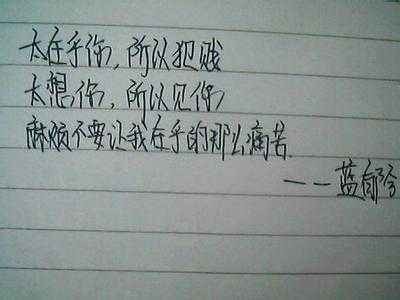 太在乎你，所以犯贱
太想你，所以见你
麻烦不要让我在乎的那么痛苦
——蓝郁